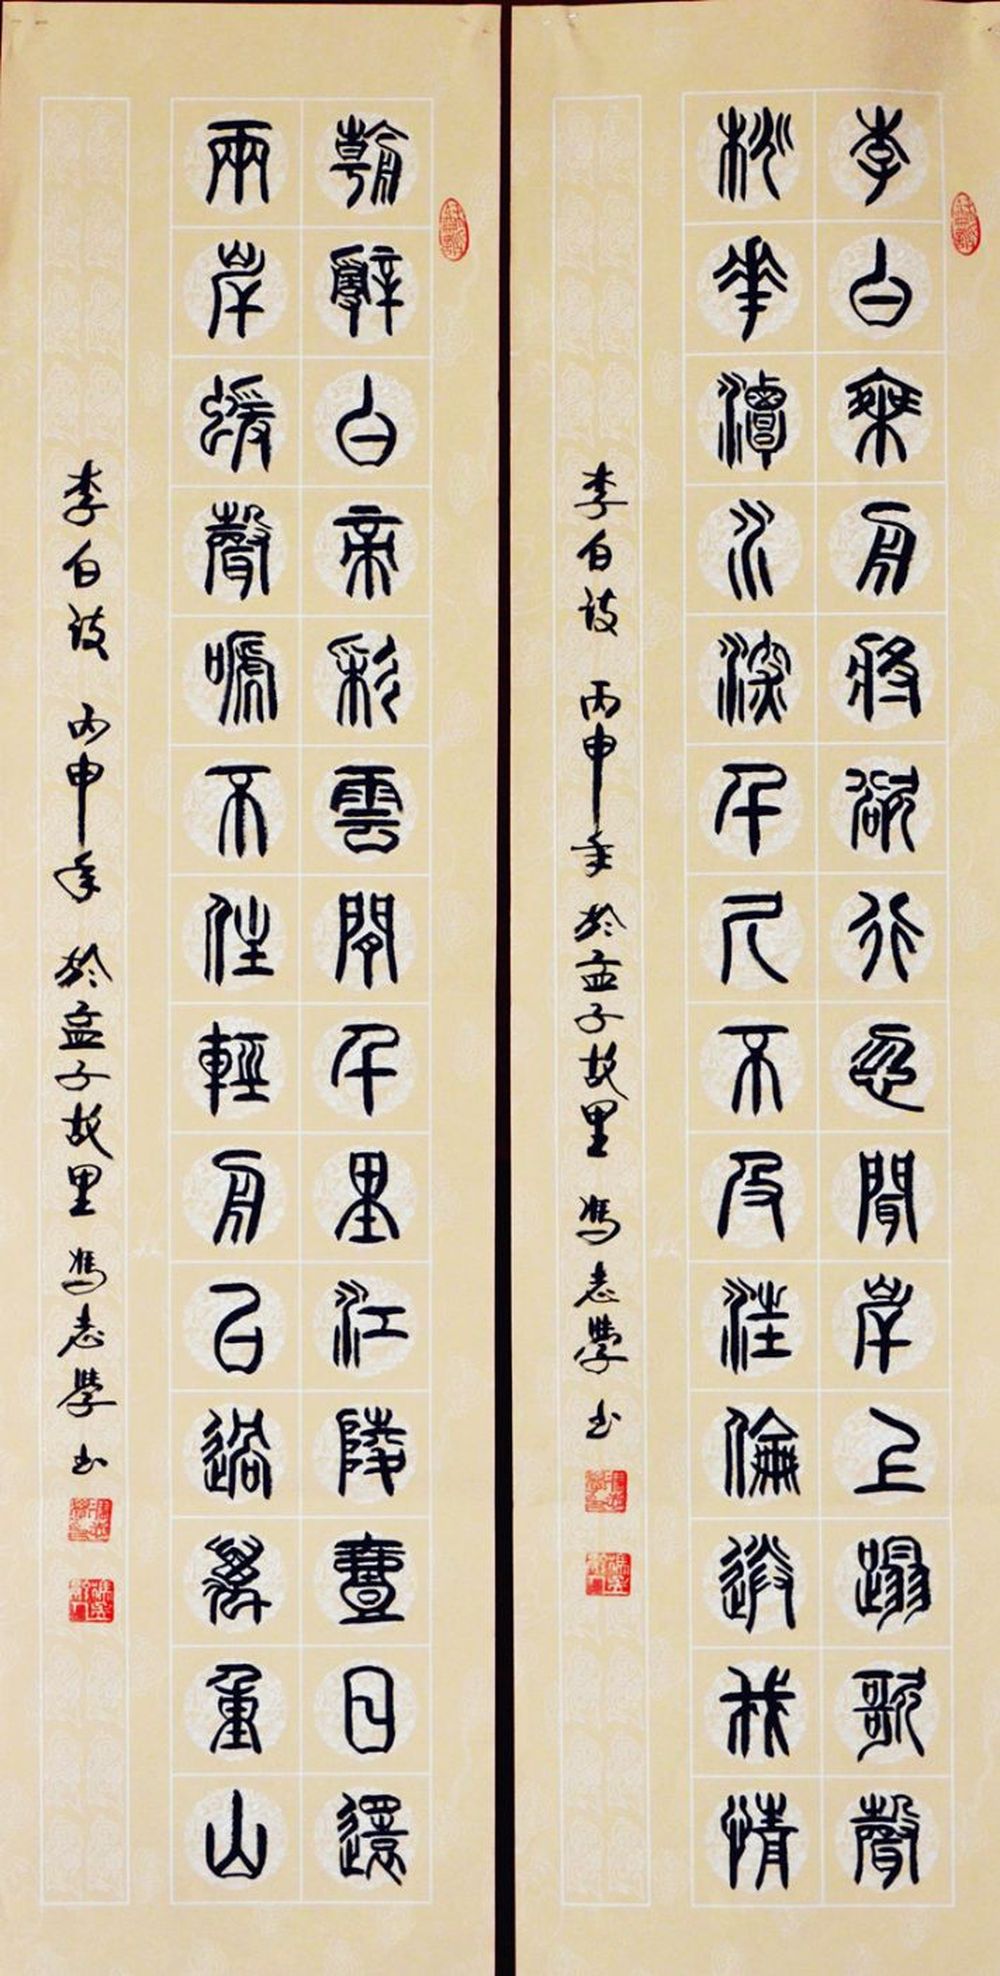 李白乘舟將欲行忽聞岸上蹋歌聲
桃花潭水深千尺不及汪倫送我情
李白詩 丙申年 於孟子故里 馮志學书
朝辭白帝彩雲間千里江陵壹日還
兩岸猿聲嗁不住輕舟已過萬重山
李白詩 丙申年 於孟子故里 馮志學书